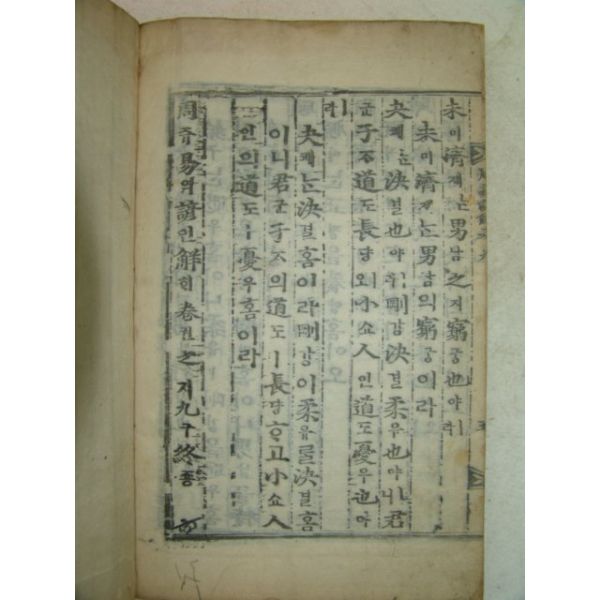 未미濟졔ᄂᆞᆫ男남之지窮궁也야ㅣ라
未미濟졔ᄂᆞᆫ男남의窮궁이라
夬쾌ᄂᆞᆫ決결也야ㅣ라剛강決결柔유也야ㅣ니君
군子ᄌᆞ道도ㅣ長댱이오小쇼人인道도ㅣ憂우也야
ㅣ라
夬쾌ᄂᆞᆫ決결홈이라剛강이柔유를決결홈
이니君군子ᄌᆞ의道도ㅣ長댱ᄒᆞ고小쇼人
인의道도ㅣ憂우홈이라
周쥬易역諺언解ᄒᆡ卷권之지九구終종